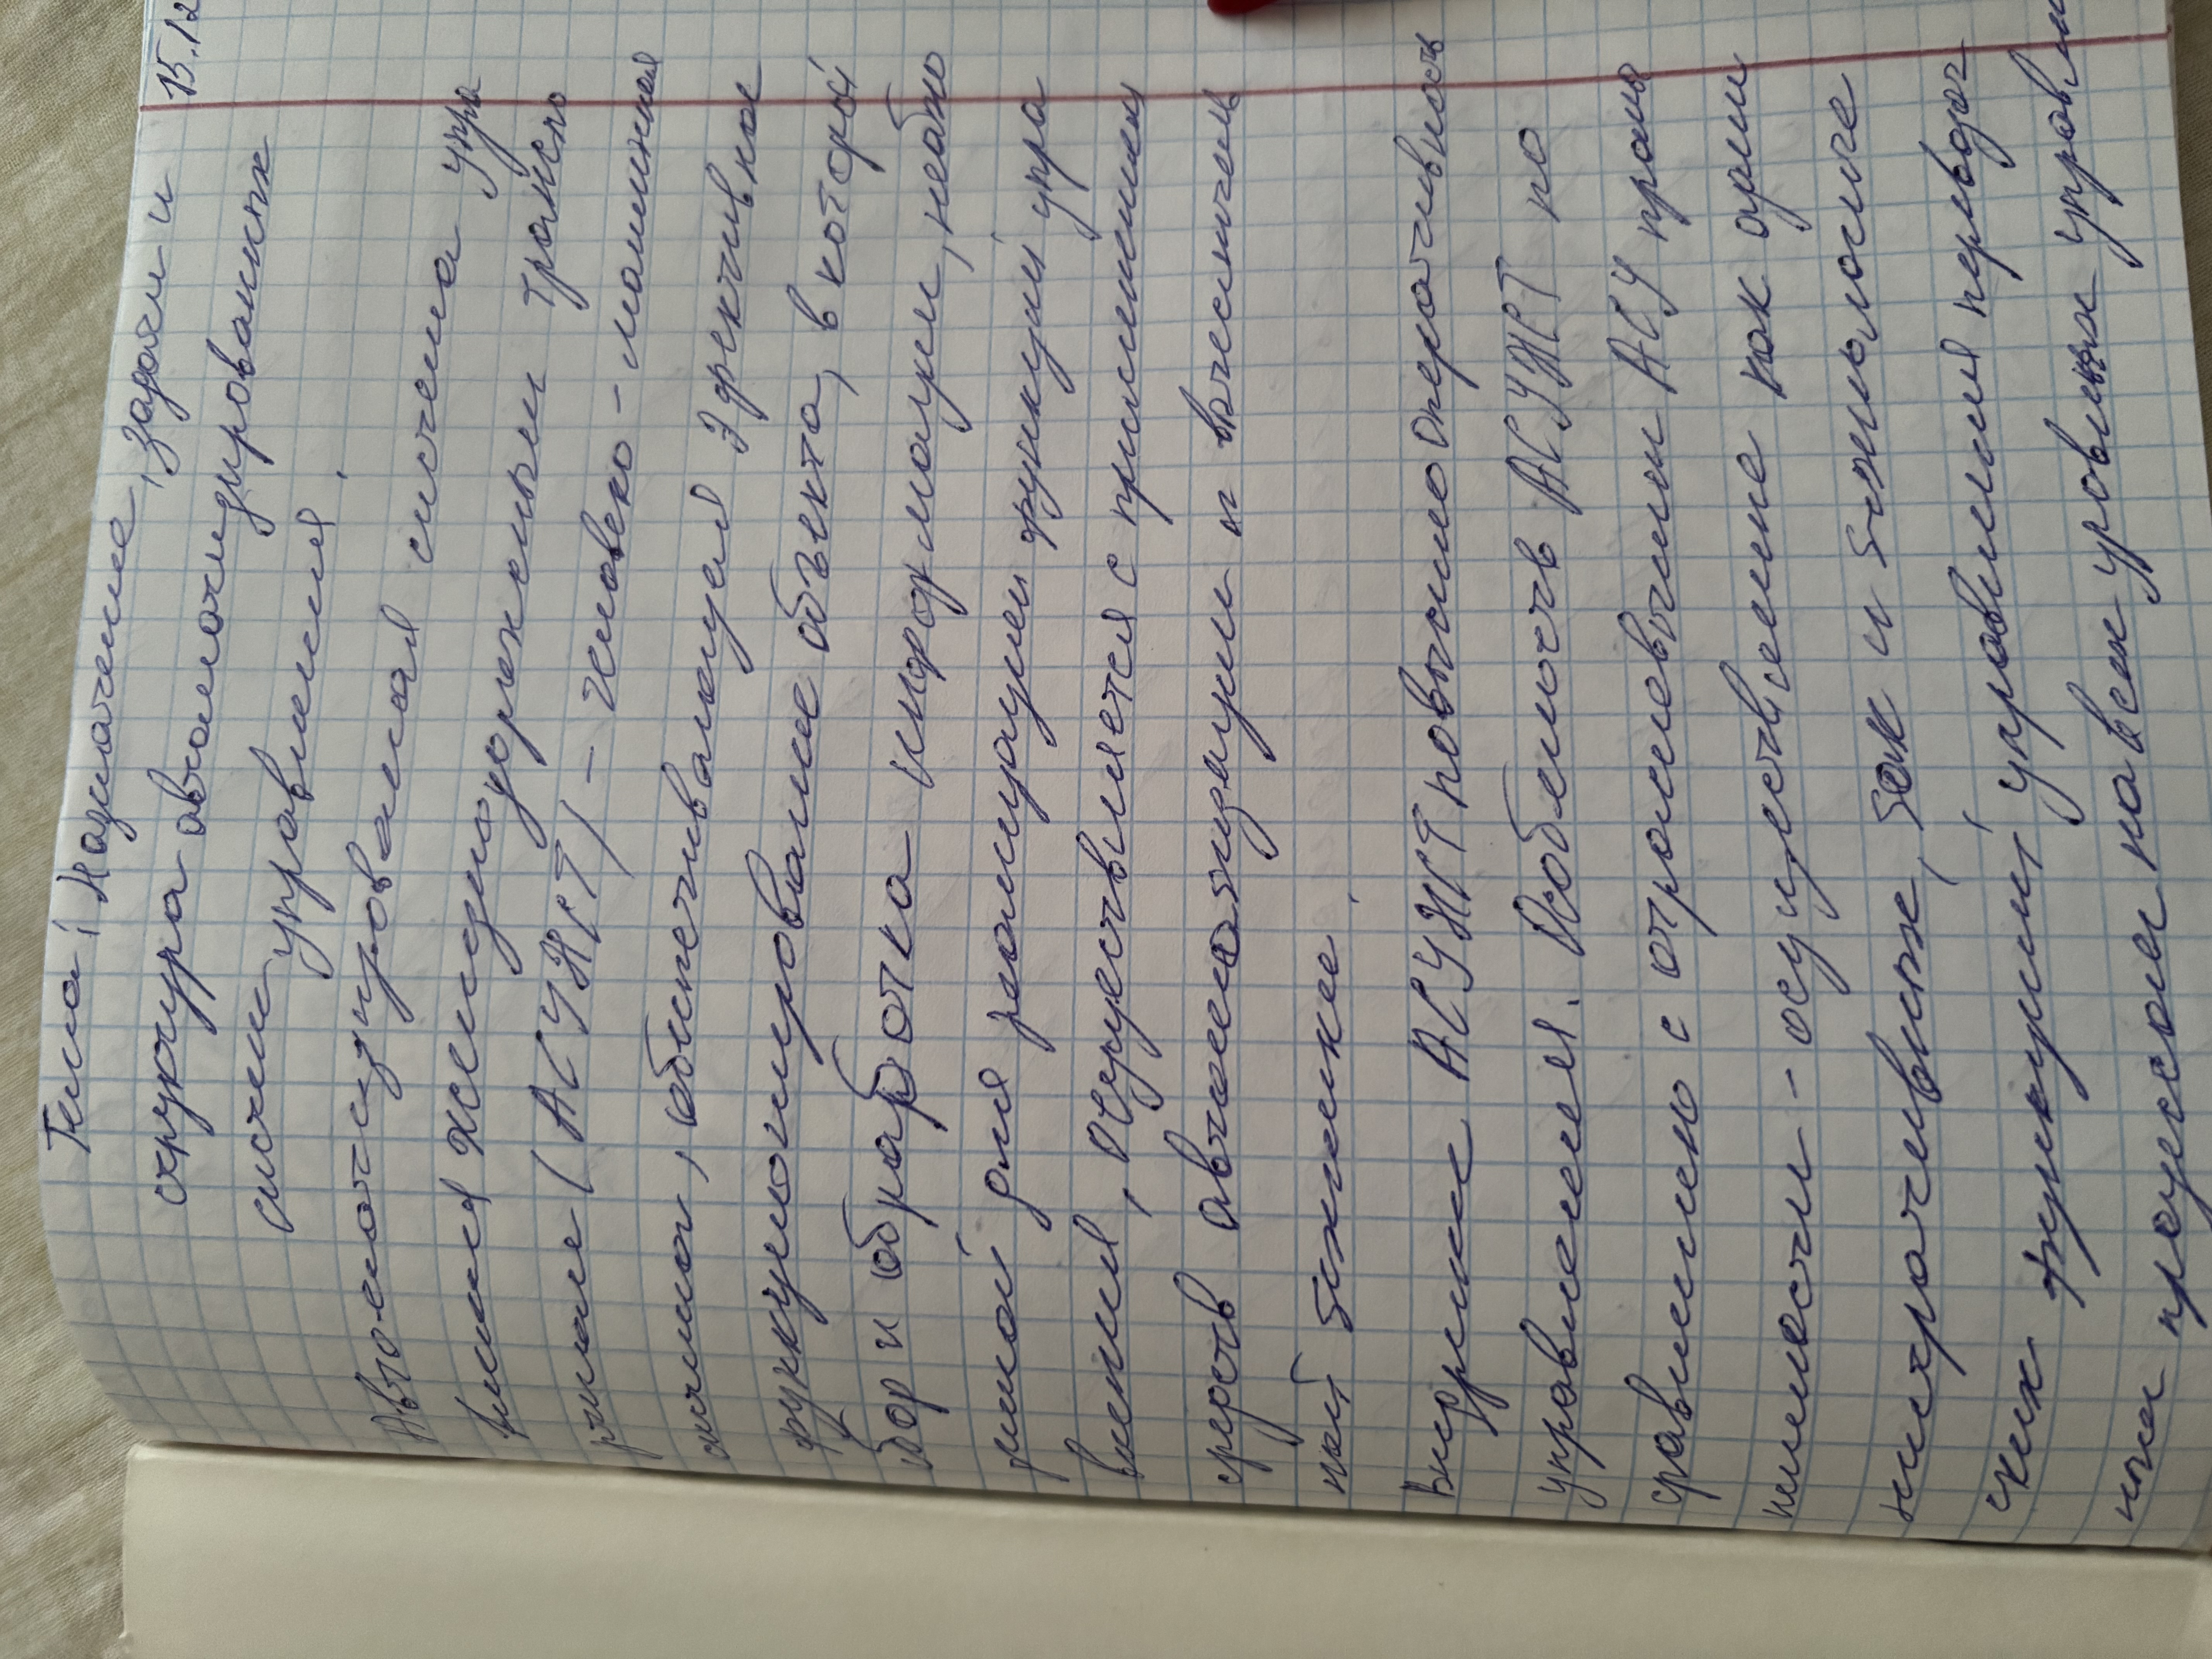 15.12
Тема: Назначение, задачи и
структура автоматизированных
систем управления.
Автоматизированная система упра
вления железнодорожным транспо
ртом (АСУЖТ) - человеко-машинная
система, обеспечивающая эффективное
функционирование объекта, в которой
сбор и обработка информации, необхо
димой для реализации функций упра
вления, осуществляется с применением
средств автоматизации и вычислитель
ной техники.
Внедрение АСУЖТ повысило оперативность
управления. Особенность АСУЖТ по
сравнению с отраслевыми АСУ промы
шленности - осуществление как адми
нистративных, так и технологиче
ских функций управления перевозоч
ным процессом на всех уровнях управлен